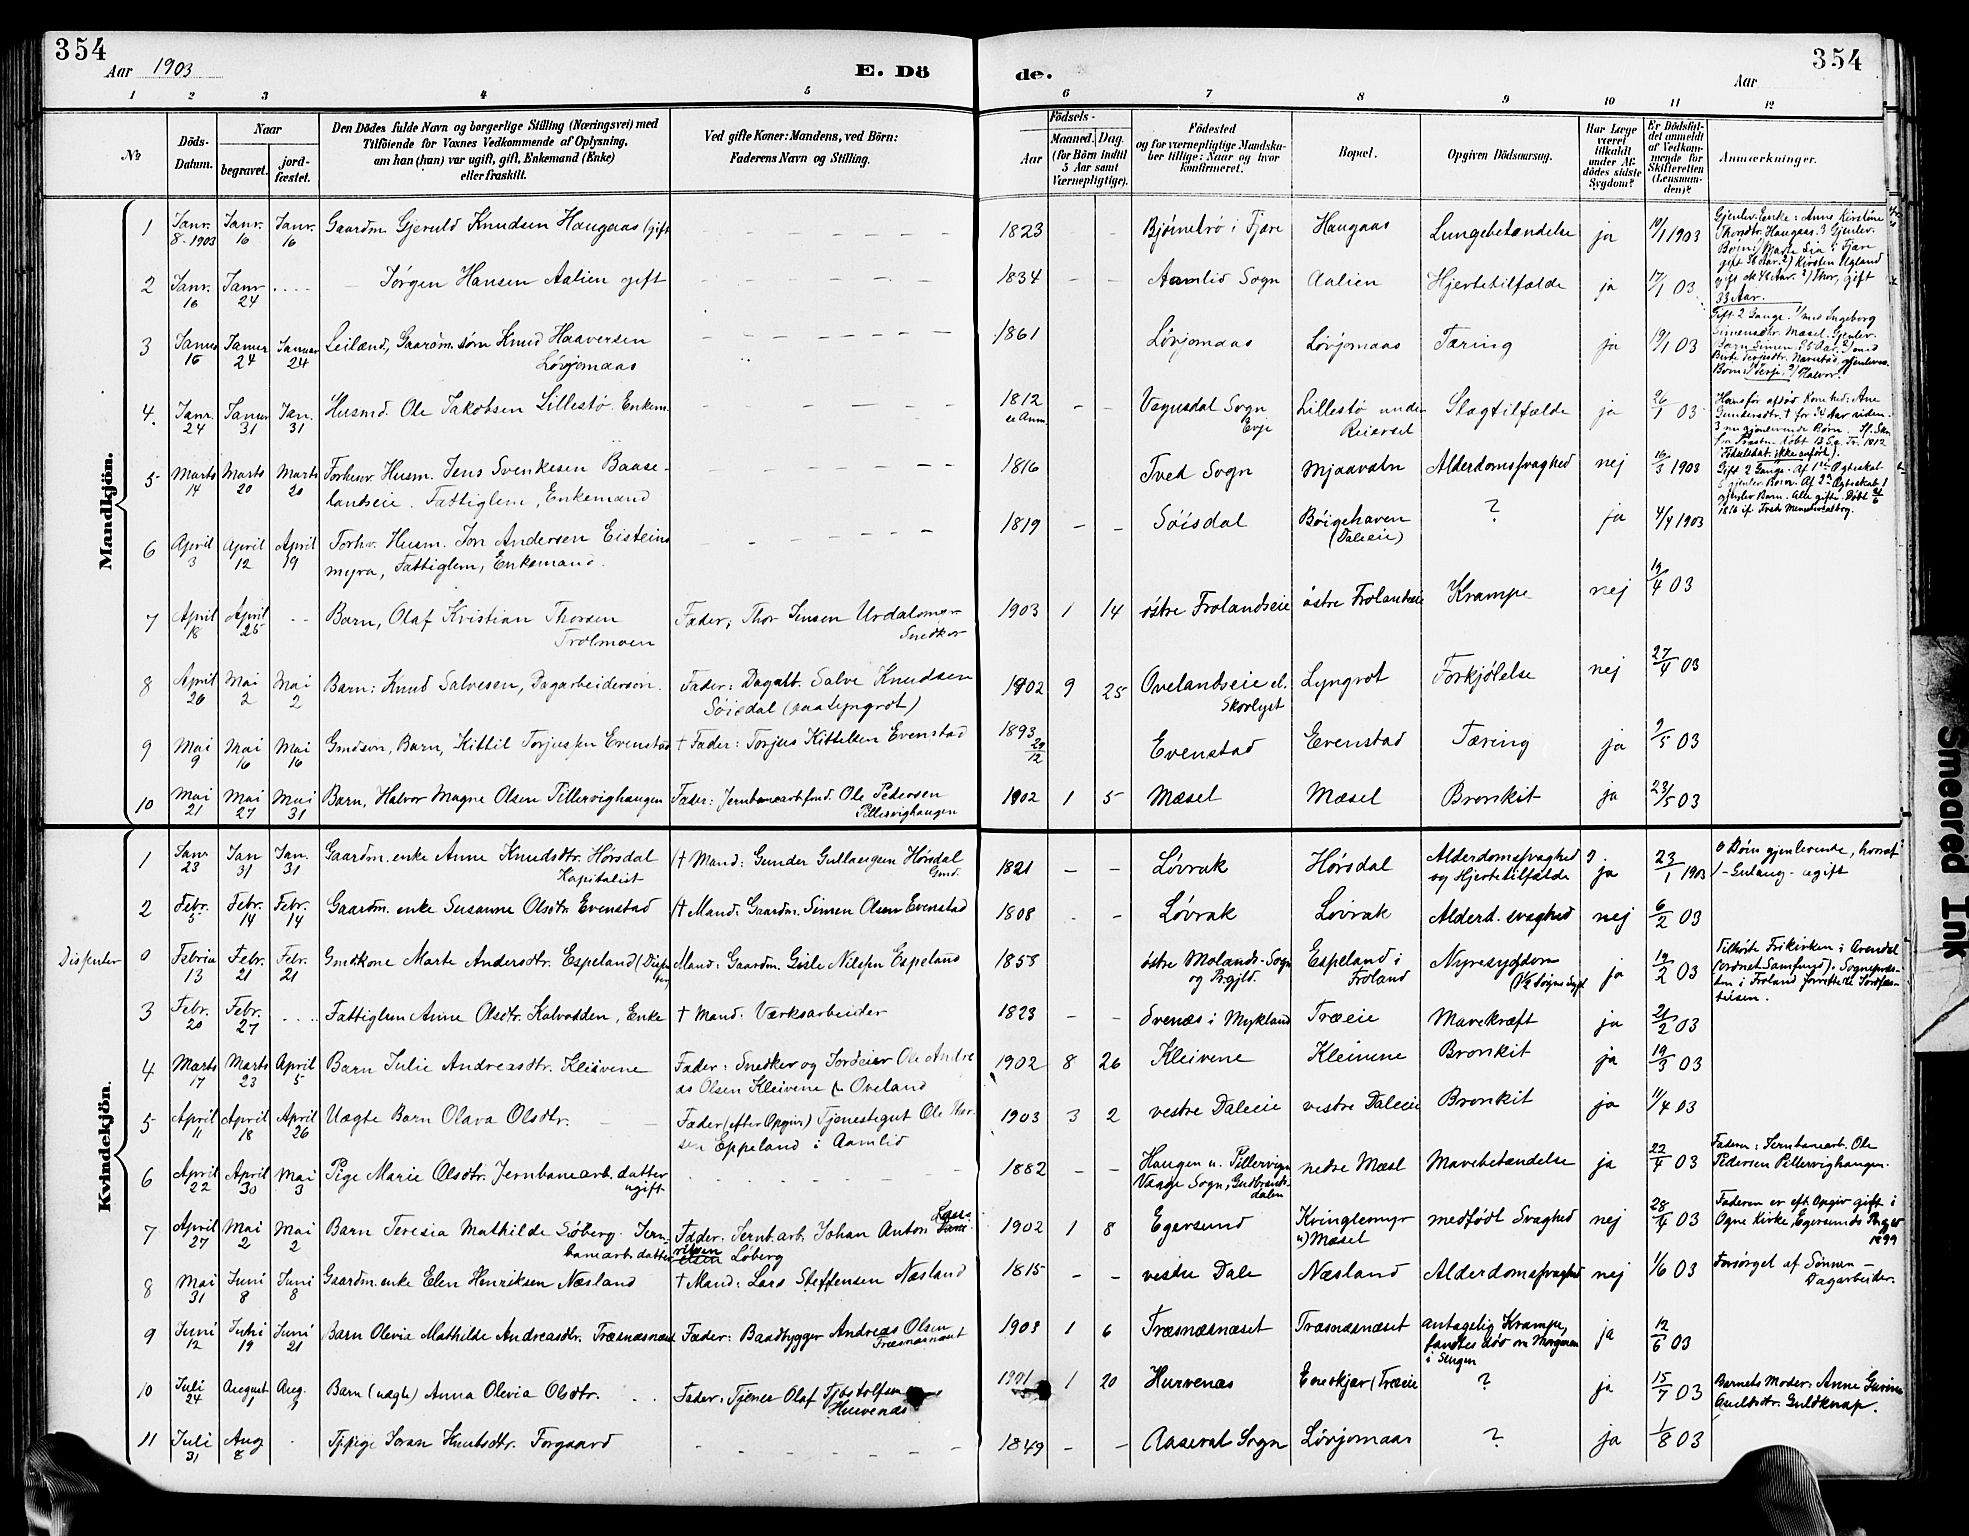 354
Aar 1903
E. Dö
de.
Aar
354
1 2 3 4 5 6 7 8 9 10 11 12
№
Döds-Datum.
Naar
begravet.
jord-fæstet.
Den Dödes fulde Navn og borgerlige Stilling (Næringsvei) med
Tilföiende for Voxnes Vedkommende af Oplysning,
om han (hun) var ugift, gift, Enkemand (Enke)
eller fraskilt.
Ved gifte Koner: Mandens, ved Börn:
Faderens Navn og Stilling.
Födsels-
Aar
Maaned. Dag.
(for Börn indtil
5 Aar samt
Værnepligtige).
Födested
og for værnepligtige Mandska-
ber tillige: Naar og hvor
konfirmeret.
Bopæl.
Opgiven Dödsaarsag.
Har Læge
været
tilkaldt
under Af-
dödes sidste
Sygdom?
Er Dödsfal-
det anmeldt
af Vedkom-
mende for
Skifteretten
(Lensman-
den)?
Anmærkninger.
Mandkjön.
1 Janr. 8-1903 Janr. 16 Janr. 16 Gaardm. Gjeruld Knudsen Haugaas (gift 1823 - - Bjørnetrø i Fjære Haugaas Lungebetændelse ja 10/1 1903
Gjenlev. Enke: Anne Kirstine
Thorsdtr. Haugaas. 3 Gjenlev.
Børn: 1/ Marte Sia i Fjære
gift 36 Aar. 2) Kirsten Ugland
gift ok 46 Aar. 3) Thor, gift
33 Aar.
2 Janr. 16 Janr 24 .... Jørgen Hansen Aalien gift 1834 - - Aamlid Sogn Aalien Hjertetilfælde ja 17/1 03
3 Januar 16 Januar 24 Januar 24 Leilænd, Gaardm. søn Knud Haaversen
Løvjomaas
1861 Løvjomaas Løvjomaas Tæring ja 19/1 03
Gift 2 Gange. 1/ med Ingeborg
Simensdtr. Mæsel. Gjenlev.
Barn Simen, 2) med
Birte Terjesdtr. gjenlevn.
Børn 1/ Terje. 2/ Halvor.
4. Janr. 24 Januar 31 Jan. 31 Husmd. Ole Jakobsen Lillestø. Enkem. 1812 - - Vegusdal Sogn
Evje
Lillestø under
Reiersel
Slagtilfælde ja 26/1 03
Hansfør afdød Kone hed: Ane
Gundersdtr. † for 34 Aar siden.
3 nu gjenlevende Børn.
5 Marts 14 Marts 20 Marts 20 Forhenv. Husm. Jens Svenkesen Baase-
landseie. Fattiglem, Enkemand
1816 Tved Sogn Mjaavatn Alderdomssvaghed nej 16/3 1903
Gift 2 Gange. Af 1ste Ægteskab
5 gjenlev. Børn. Af 2n Ægteskab 1
gjenlev Barn. Alle gifte. Døbt
6 April 3 April 12 April 19 Forhv. Husm. Jon Andersen Eisteins
myra, Fattiglem, Enkemand.
1819 - - Søisdal Bøigehaven
(Daleie)
? ja 4/4 1903
7 April 18 April 25 -- Barn, Olaf Kristian Thorsen
Trolmoen
Fader; Thor Jensen Urdalsmyr
Snedker
1903 1 14 østre Frolandseie østre Frolandseie Krampe nej 19/4 03
8 April 26 Mai 2 Mai 2 Barn: Knud Salvesen, Dagarbeidersøn. Fader: Dagarb. Salve Knudsen
Søisdal (paa Lyngrot)
1902 9 25 Ovelandseie el.
Skovlyst
Lyngrot Forkjølelse nej 27/4 03
9 Mai 9 Mai 16 Mai 16 Gmdsøn, Barn, Kittil Torjussen Evenstad † Fader: Torjus Kittelsen Evenstad 1893
29/12
Evenstad Evenstad Tæring ja 2/5 03
10 Mai 21 Mai 27 Mai 31 Barn, Halvor Magne Olsen Pillervighaugen Fader: Jernbanearb. fmd. Ole Pedersen
Pillervighaugen
1902 1 5 Mæsel Mæsel Bronkit ja 23/5 03
Kvindekjön.
1 Janr 23 Jan 31 Jan. 31 Gaardm. enke Anne Knudsdtr. Hørsdal
Kapitalist
(† Mand: Gunder Gullaugsen Hørsdal
Gmd.
1821 - - Løvrak Hørsdal Alderdomssvaghed
og Hjertetilfælde
ja 23/1 1903
6 Børn gjenlevende, hvoraf
1 - Gulaug - ugift
2 Febr. 5 Febr. 14 Febr. 14 Gaardm. enke Susanne Olsdtr. Evenstad († Mand: Gaardm. Simen Olsen Evenstad 1808 - - Løvrak Løvrak Alderd. svaghed nej 6/2 03
Disenter 0 Februa 13 Febr. 21 Febr. 21 Gmdkone Marte Andersdtr. Espeland (Disen
ter
Mand: Gaardm. Gisle Nilsen Espeland 1853 østre Molands-Sogn
og Prgjld.
Espeland i
Froland
Nyresygdom
(1½ Døgns syg)
ja 19/2 03
Tilhørte Frikirken i Arendal
(ordnet Samfund). Sognepræs-
ten i Froland forrettede Jordfæs-
telsen.
3 Febr. 20 Febr. 27 .... Fattiglem Anne Olsdtr. Kalvodden, Enke † Mand: Værksarbeider 1823 - - Svenæs i Mykland Træeie Mavekræft ja 21/2 03
4 Marts 17 Marts 23 April 5 Barn Julie Andreasdtr. Kleivene Fader: Snedker og Jordeier Ole Andre
as Olsen Kleivene (u Oveland
1902 8 26 Kleivene Kleivene Bronkit ja 19/3 03
5 April 11 April 18 April 26 Uægte Barn Olava Olsdtr. Fader (efter Opgiv.) Tjenestegut Ole Hor-
sen Eppeland i Aamlid
1903 3 2 vestre Daleeie vestre Daleeie Bronkit ja 11/4 03
6 April 22 April 30 Mai 3 Pige Marie Olsdtr. Jernbanearb. datter
ugift
1882 - - Haugen u. Pillervign
Vaage Sogn, Gudbrands-
dalen
nedre Mæsl Mavebetændelse ja 22/4 03
Fadern: Jernbanearb. Ole
Pedersen Pillervighaugen.
7 April 27 Mai 2 Mai 2 Barn Teresia Mathilde Søberg. Jern-
banearb. datter
Fader: Jernb. arb. Johan Anton
Løberg
1902 1 8 Egersund Kvinglemyr
u) Mæsel
medfødt Svaghed nej 28/4 03
Faderen er eft. Opgiv gift i
Ogne Kirke, Egersunds Prgjld
1899
8 Mai 31 Juni 8 Juni 8 Gaardm. enke Elen Henriksen Næsland † Mand: Lars Steffensen Næsland 1815 - - vestre Dale Næsland Alderdomssvaghed nej 1/6 03
Forsørget af Sønnen -
Dagarbeider.
9 Juni 12 Juni 19 Juni 21 Barn Olevia Mathilde Andreasdtr. Træsnæsnæset Fader: Baadbygger Andreas Olsen
Træsnæsnæset
1903 1 6 Træsnæsnæset Træsnæsnæset antagelig Krampe,
fandtes død om Morgenen
i Sengen
ja 12/6 03
10 Juli 24 August 1 Aug. Barn (uægte) Anna Olevia Olsdtr. Fader: Tjener Olaf Tjøstolfsen
Hurvenæs
1901 1 20 Hurvenæs Enerskjær (Træeie ? ja 15/7 03
Barnets Moder: Anne Gurine
Auelsdtr. Guldknap.
11 Juli 31 Aug 8 - Tjpige Joran Knutsdtr. Torgaard 1849 - - Aaseral Sogn Løvjomaas ? ja 1/8 03
Smeared Ink